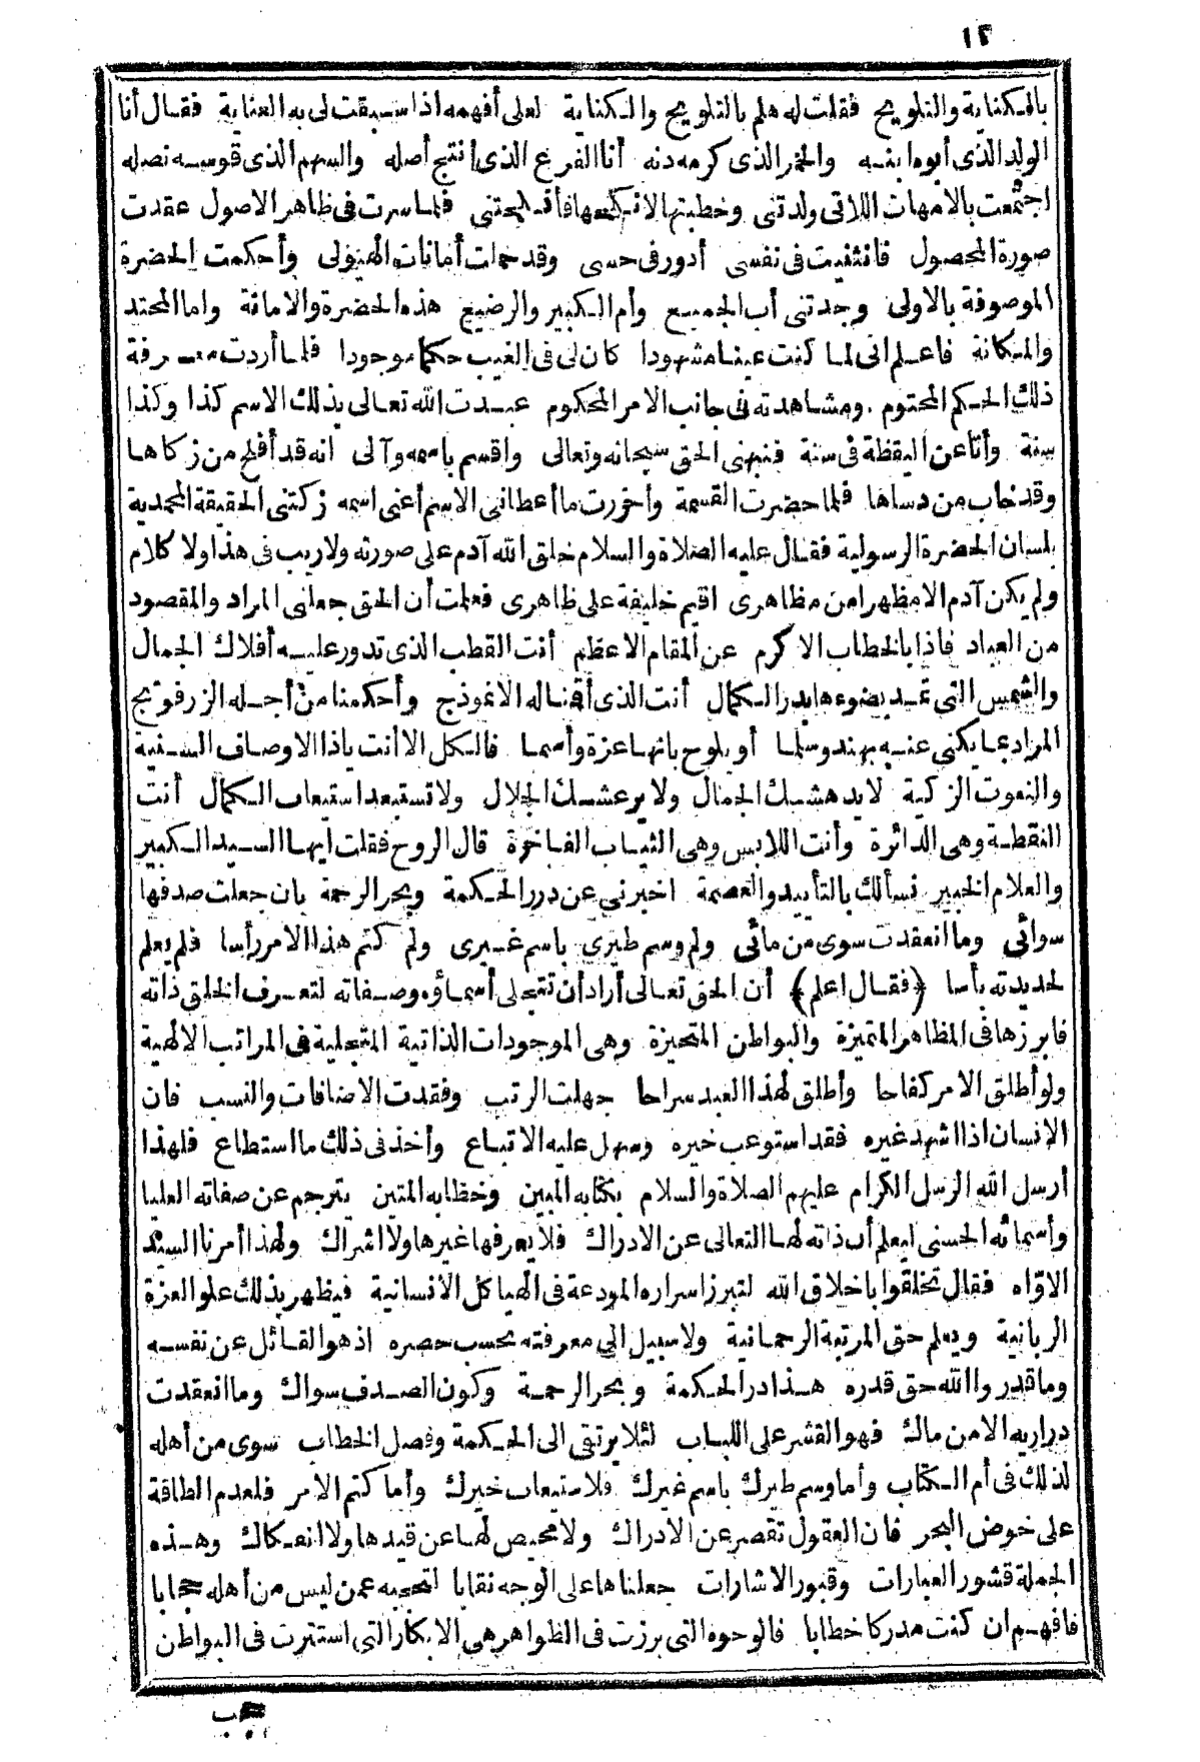 ١٢
بالكناية والتلويح فقلت له هلم بالتلويح والكناية لعلى أفهمه اذا سبقت لى به العناية فقال أنا
الولد الذى أبوه ابنه والخمر الذى كرمه دنه أنا الفرع الذى انتج أصله والسهم الذى قوسه نصله
اجتمعت بالامهات اللاتى ولدتنى وخطبتها لانكحها فأنكحتنى فلما سرت فى ظاهر الاصول عقدت
صورة المحصول فانثنيت فى نفسى أدور فى حسى وقد حملت أمانات الهيولى وأحكمت الحضرة
الموصوفة بالاولى وجدتنى أب الجميع وأم الكبير والرضيع هذه الحضرة والامانة واما المحتد
والمكانة فاعلم انى لما كنت عينا مشهودا كان لى فى الغيب حكما موجودا فلما أردت معرفة
ذلك الحكم المحتوم ومشاهدته فى جانب الامر المحكوم عبدت الله تعالى بذلك الاسم كذا وكذا
سنة وأنا عن اليقظة فى سنة فنبهنى الحق سبحانه وتعالى واقسم باسمه وآلى انه قد أفلح من زكاها
وقد خاب من دساها فلما حضرت القسمة وأحرزت ما أعطانى الاسم أعنى اسمه زكتنى الحقيقة المحمدية
بلسان الحضرة الرسولية فقال عليه الصلاة والسلام خلق الله آدم على صورته ولا ريب فى هذا ولا كلام
ولم يكن آدم الا مظهرا من مظاهرى اقيم خليفة على ظاهرى فعلمت أن الحق جعلنى المراد والمقصود
من العباد فاذا بالخطاب الاكرم عن المقام الاعظم أنت القطب الذى تدور عليه أفلاك الجمال
والشمس التى تمد بضوءها بدر الكمال أنت الذى أقمنا له الانموذج وأحكمنا من أجله الزرفوتج
المراد بما يكنى عنه بهند وسلما أو يلوح بانها عزة وأسما فالكل الا أنت ياذا الاوصاف السنية
والنعوت الزكية لا يدهشك الجمال ولا يرعشك الجلال ولا تستبعد استيعاب الكمال أنت
النقطة وهى الدائرة وأنت اللابس وهى الثياب الفاخرة قال الروح فقلت أيها السيد الكبير
والعلام الخبير نسألك بالتأييد والعصمة اخبرنى عن درر الحكمة وبحر الرحمة بان جعلت صدفها
سوائى وما انعقدت سوى من مائى ولم وسم طيرى باسم غيرى ولم كتم هذا الامر رأسا فلم يعلم
لحديدته بأسا (فقال اعلم) أن الحق تعالى أراد أن تتجلى أسماؤه وصفاته لتعرف الخلق ذاته
فابرزها فى المظاهر المتميزة والبواطن المتحيزة وهى الموجودات الذاتية المتجلية فى المراتب الالهية
ولو أطلق الامر كفاحا وأطلق لهذا العبد سراحا جهلت الرتب وفقدت الاضافات والنسب فان
الانسان اذا اشهد غيره فقد استوعب خيره وسهل عليه الاتباع وأخذ فى ذلك ما استطاع فلهذا
أرسل الله الرسل الكرام عليهم الصلاة والسلام بكتابه المبين وخطابه المتين يترجم عن صفاته العليا
وأسمائه الحسنى ليعلم أن ذاته لها التعالى عن الادراك فلا يعرفها غيرها ولا اشراك ولهذا أمرنا السيد
الاواه فقال تخلقوا باخلاق الله لتبرز اسراره المودعة فى الهياكل الانسانية فيظهر بذلك علو العزة
الربانية ويعلم حق المرتبة الرحمانية ولا سبيل الى معرفته بحسب حصره اذ هو القائل عن نفسه
وما قدروا الله حق قدره هذا در الحكمة وبحر الرحمة وكون الصدف سواك وما انعقدت
دراريه الا من مائك فهو القشر على اللباب لئلا يرتقى الى الحكمة وفصل الخطاب سوى من أهله
لذلك فى أم الكتاب وأما وسم طيرك باسم غيرك فلاستيعاب خيرك وأما كتم الامر فلعدم الطاقة
على خوض البحر فان العقول تقصر عن الادراك ولا محيص لها عن قيدها ولا انفكاك وهذه
الجملة قشور العبارات وقبور الاشارات جعلناها على الوجه نقابا لتحجبه عمن ليس من أهله حجابا
فافهم ان كنت مدركا خطابا فالوجوه التى برزت فى الظواهر هى الابكار التى استترت فى البواطن